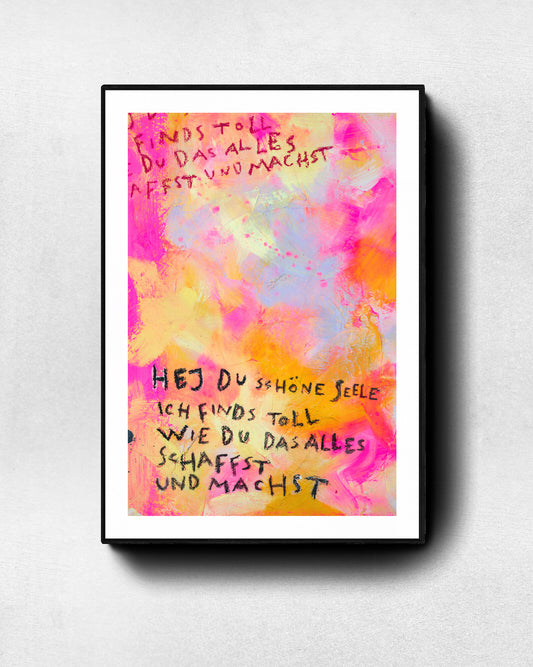 FINDS TOLL
DU DAS ALLES
AFFST UND MACHST
HEJ DU SCHÖNE SEELE
ICH FINDS TOLL
WIE DU DAS ALLES
SCHAFFST
UND MACHST